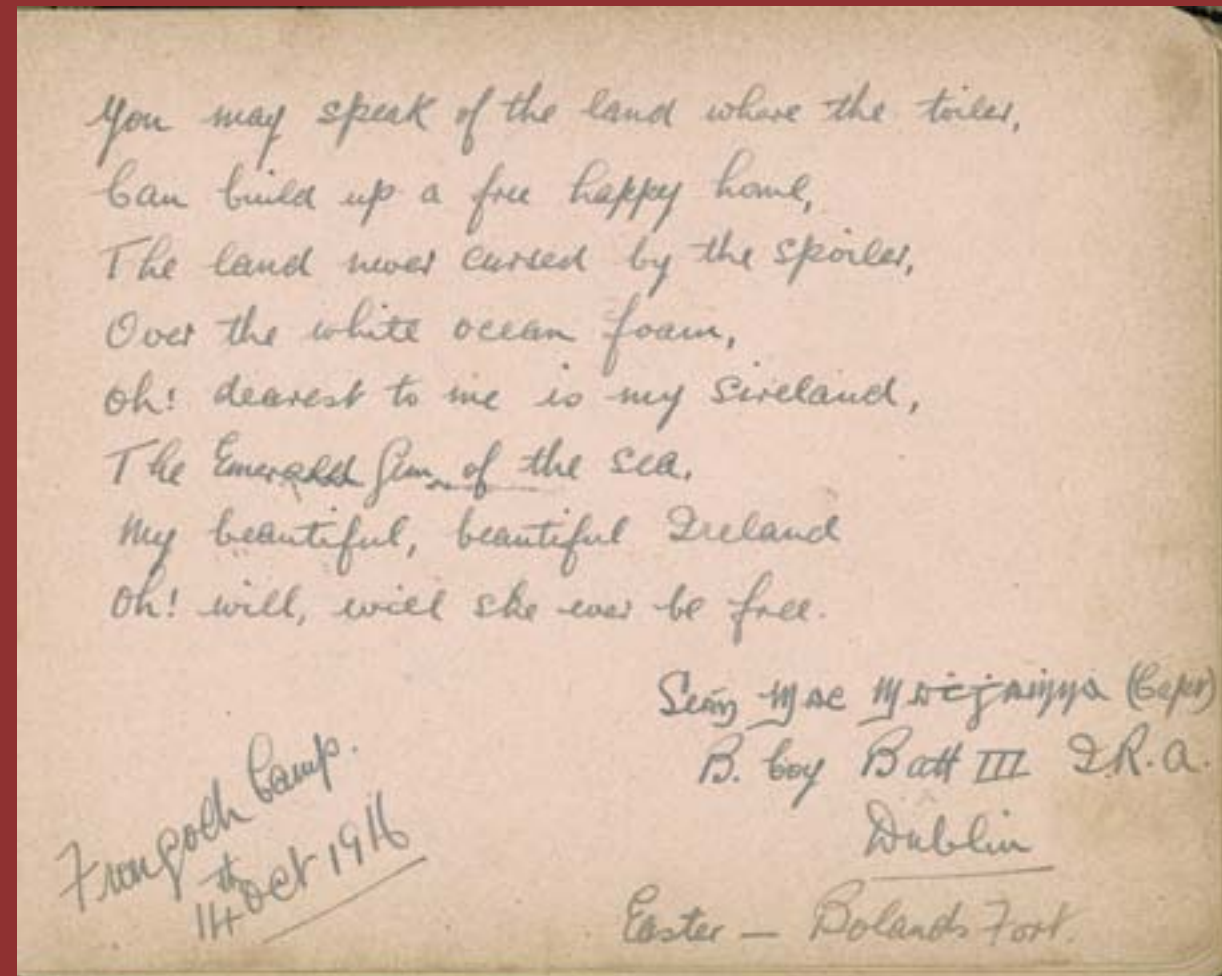 You may speak of the land where the toiler,
Can build up a free happy home,
The land never cursed by the spoiler,
Over the white ocean foam,
Oh! dearest to me is my sireland,
The Emerald Gem of the sea.
My beautiful, beautiful Ireland
Oh! will, will she ever be free.
Seán Mac (Capt)
B. Coy Batt III I.R.A.
Dublin
Frongoch Camp.
14th Oct 1916
Easter — Bolands Fort.